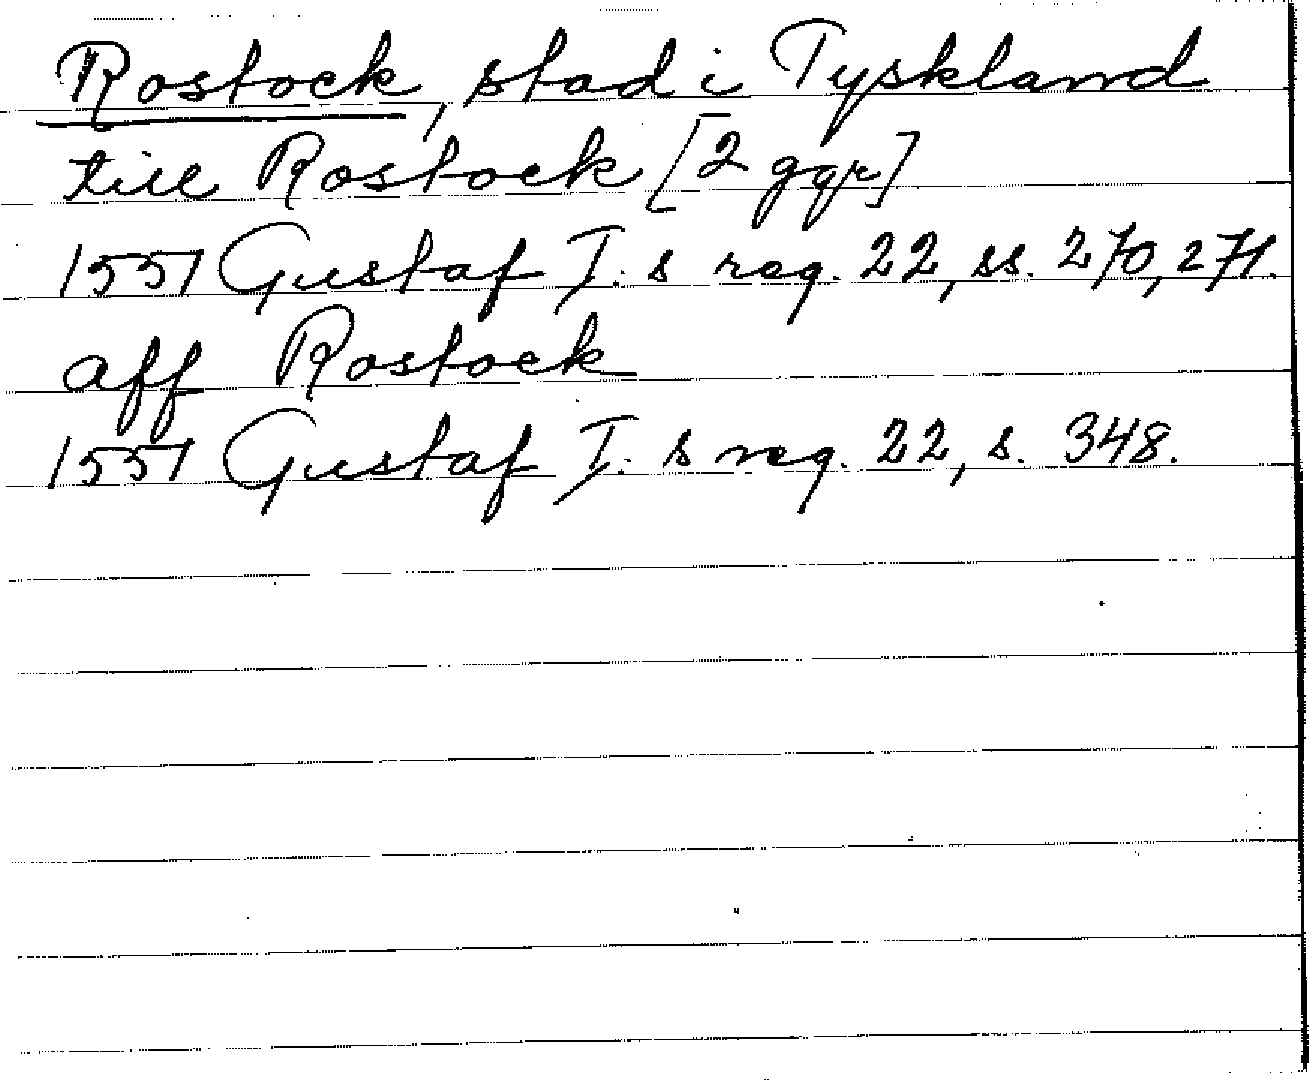 Rostock, stad i Tyskland
till Rostock [2 ggr]
1551 Gustaf I:s reg. 22, ss. 270, 271.
aff Rostock
1551 Gustaf I:s reg. 22, s. 348.